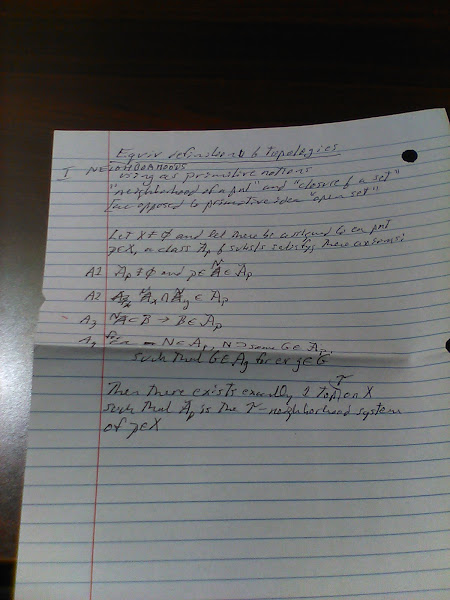 Equiv definitions of topologies
I NEIGHBORHOODS
using as primitive notions
"neighborhood of a pnt" and "closure of a set"
[as opposed to primitive idea "open set"
Let X ≠ ∅ and let there be assigned to ea pnt
p∈X, a class Ap of subsets satisfying these axioms:
A1 Ap ≠ ∅ and p∈ N ∈ Ap
A2 ∩ ∈ Ap
A3 N⊂B → B∈Ap
A4 N∈Ap, N⊃ some G∈Ap
such that G∈Ag for ev g∈G
Then there exists exactly 1 top T on X
such that Ap is the T-neighborhood system
of p∈X